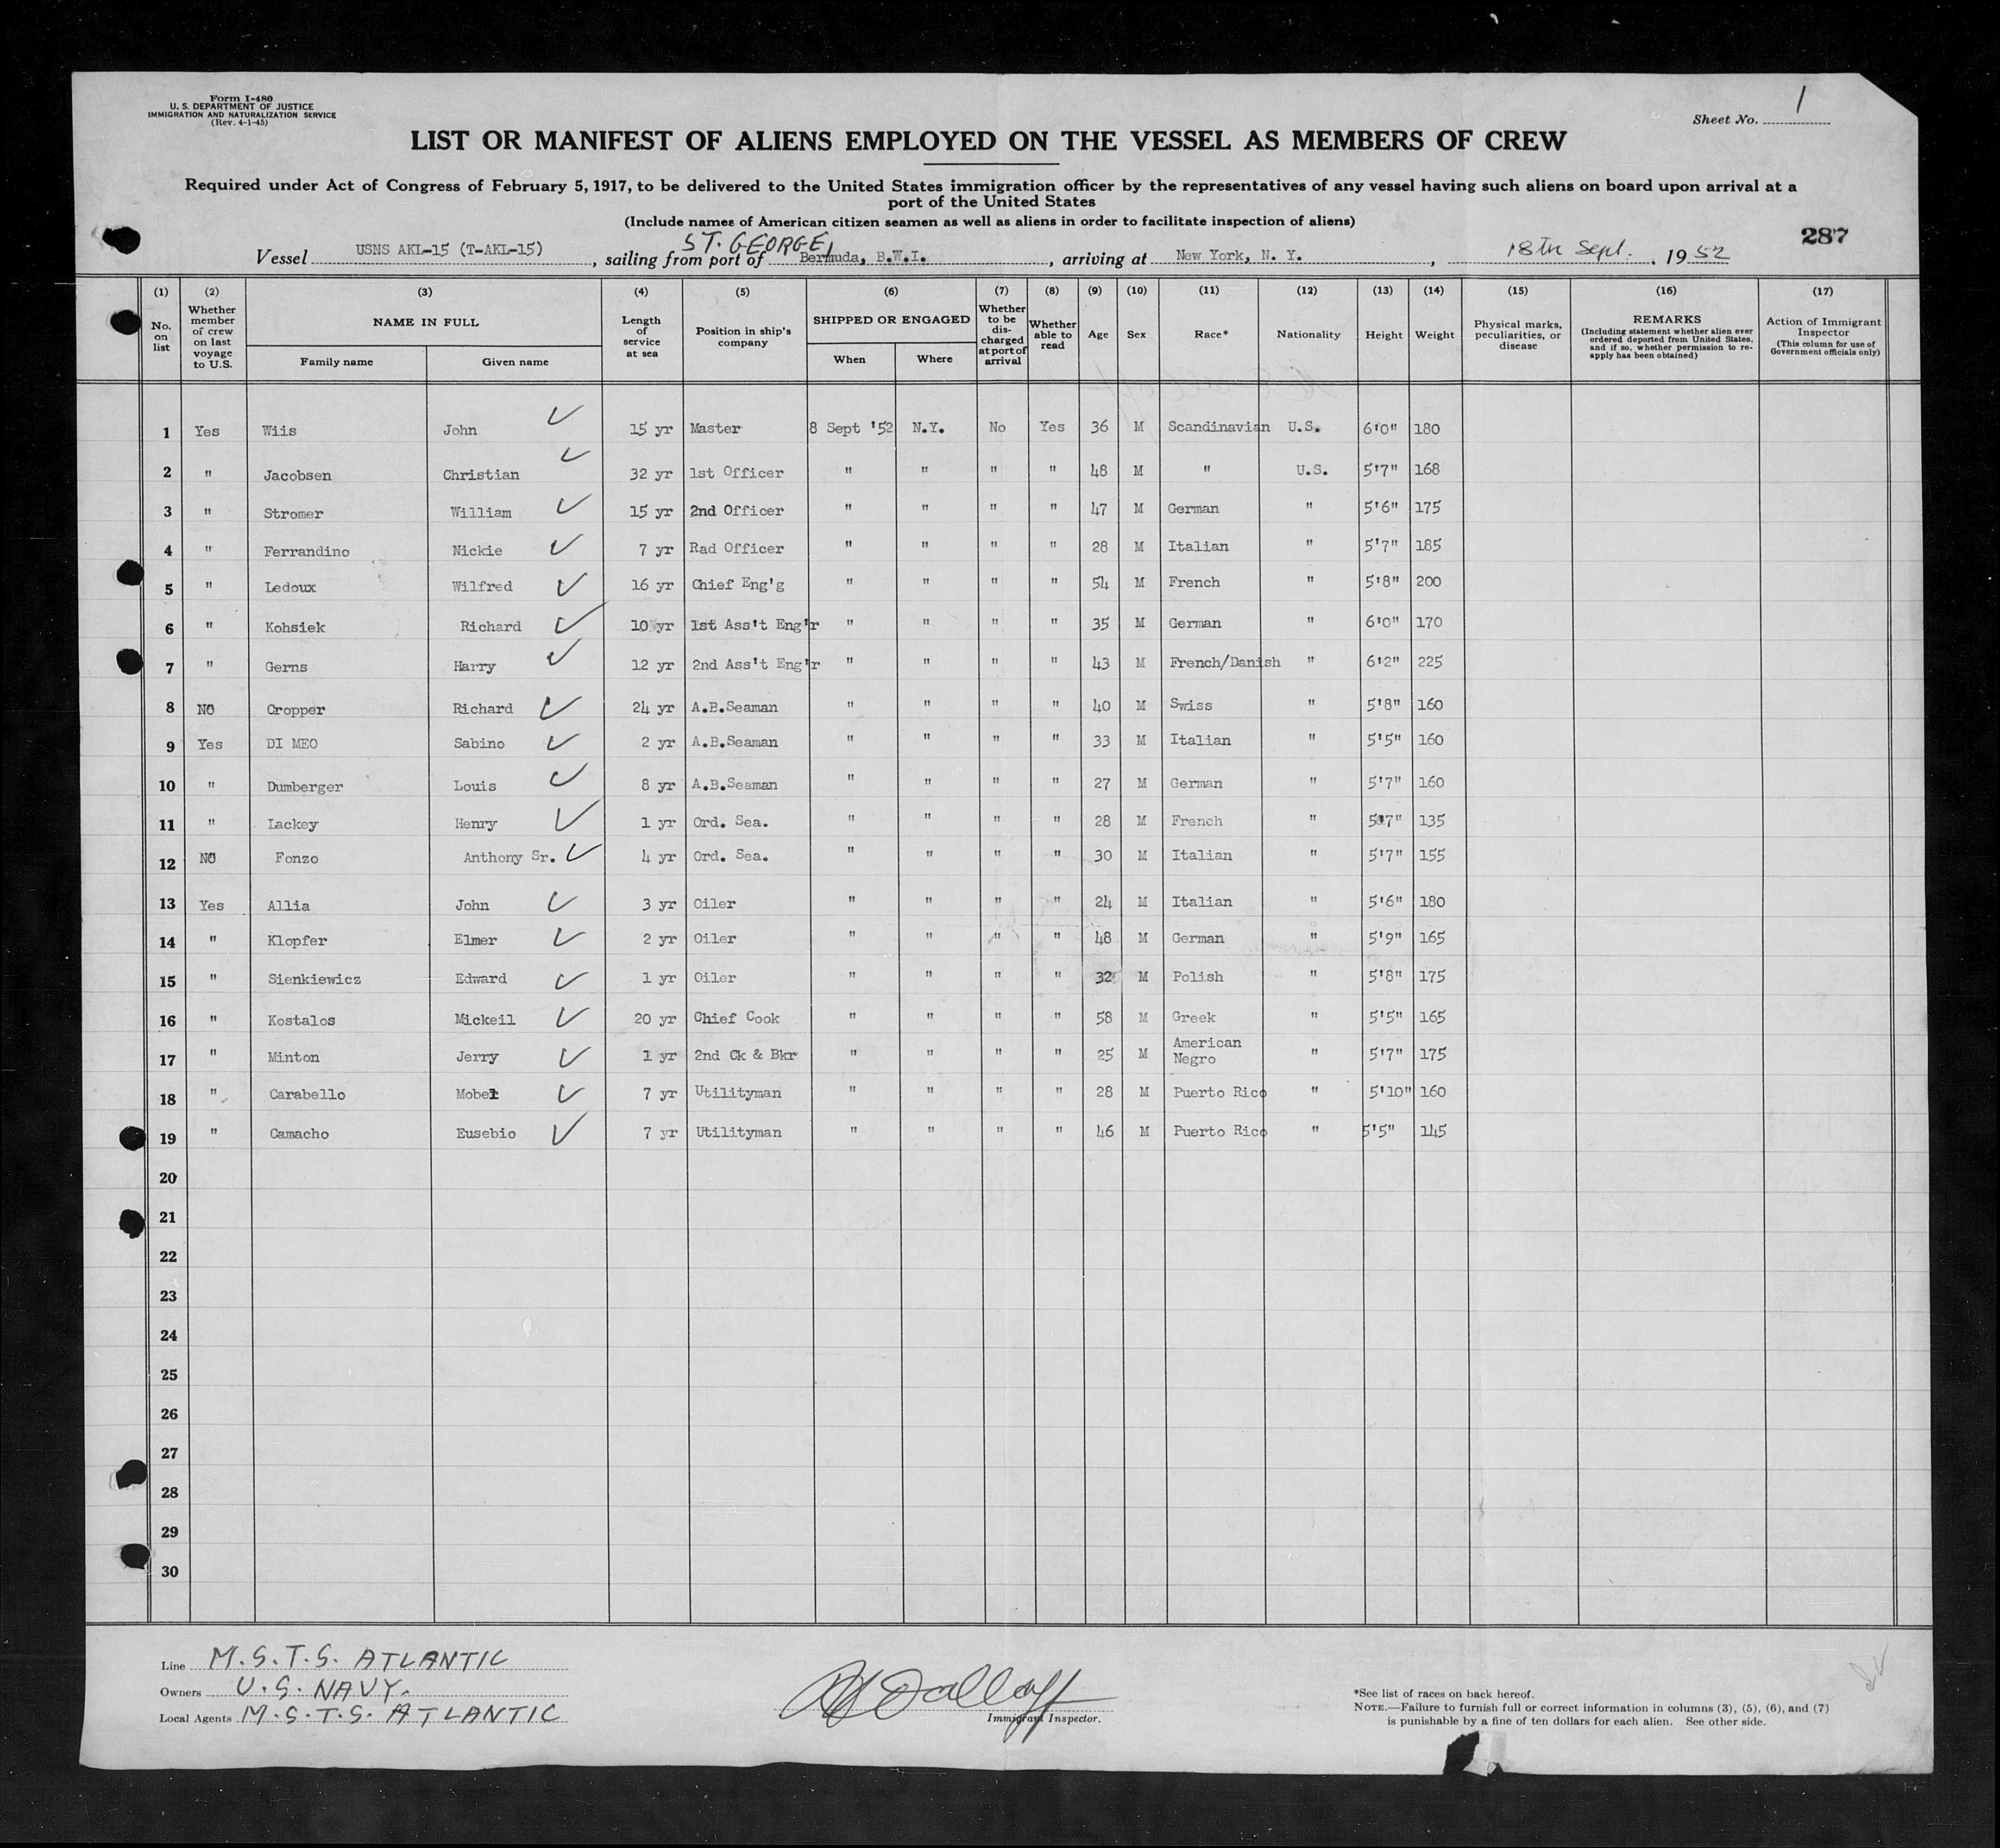 Form I-480
U. S. DEPARTMENT OF JUSTICE
IMMIGRATION AND NATURALIZATION SERVICE
(Rev. 4-1-45)
Sheet No. 1
LIST OR MANIFEST OF ALIENS EMPLOYED ON THE VESSEL AS MEMBERS OF CREW
Required under Act of Congress of February 5, 1917, to be delivered to the United States immigration officer by the representatives of any vessel having such aliens on board upon arrival at a
port of the United States
(Include names of American citizen seamen as well as aliens in order to facilitate inspection of aliens)
287
Vessel USNS AKL-15 (T-AKL-15), sailing from port of ST. GEORGE, Bermuda, B.W.I., arriving at New York, N. Y., 18th Sept. 1952
(1) No. on list (2) Whether member of crew on last voyage to U.S. (3) NAME IN FULL Family name Given name (4) Length of service at sea (5) Position in ship's company (6) SHIPPED OR ENGAGED When Where (7) Whether to be discharged at port of arrival (8) Whether able to read (9) Age (10) Sex (11) Race* (12) Nationality (13) Height (14) Weight (15) Physical marks, peculiarities, or disease (16) REMARKS (Including statement whether alien ever ordered deported from United States, and if so, whether permission to reapply has been obtained) (17) Action of Immigrant Inspector (This column for use of Government officials only)
1 Yes Wiis John 15 yr Master 8 Sept '52 N.Y. No Yes 36 M Scandinavian U.S. 6'0" 180
2 " Jacobsen Christian 32 yr 1st Officer " " " " 48 M " U.S. 5'7" 168
3 " Stromer William 15 yr 2nd Officer " " " " 47 M German " 5'6" 175
4 " Ferrandino Nickie 7 yr Rad Officer " " " " 28 M Italian " 5'7" 185
5 " Ledoux Wilfred 16 yr Chief Eng'g " " " " 54 M French " 5'8" 200
6 " Kohsiek Richard 10 yr 1st Ass't Eng'r " " " " 35 M German " 6'0" 170
7 " Gerns Harry 12 yr 2nd Ass't Eng'r " " " " 43 M French/Danish " 6'2" 225
8 NO Cropper Richard 24 yr A.B.Seaman " " " " 40 M Swiss " 5'8" 160
9 Yes DI MEO Sabino 2 yr A.B.Seaman " " " " 33 M Italian " 5'5" 160
10 " Dumberger Louis 8 yr A.B.Seaman " " " " 27 M German " 5'7" 160
11 " Lackey Henry 1 yr Ord. Sea. " " " " 28 M French " 5'7" 135
12 NO Fonzo Anthony Sr. 4 yr Ord. Sea. " " " " 30 M Italian " 5'7" 155
13 Yes Allia John 3 yr Oiler " " " " 24 M Italian " 5'6" 180
14 " Klopfer Elmer 2 yr Oiler " " " " 48 M German " 5'9" 165
15 " Sienkiewicz Edward 1 yr Oiler " " " " 32 M Polish " 5'8" 175
16 " Kostalos Mickeil 20 yr Chief Cook " " " " 58 M Greek " 5'5" 165
17 " Minton Jerry 1 yr 2nd Ck & Bkr " " " " 25 M American Negro " 5'7" 175
18 " Carabello Mobel 7 yr Utilityman " " " " 28 M Puerto Rico " 5'10" 160
19 " Camacho Eusebio 7 yr Utilityman " " " " 46 M Puerto Rico " 5'5" 145
20
21
22
23
24
25
26
27
28
29
30
Line M.S.T.S. ATLANTIC
Owners U.S. NAVY.
Local Agents M.S.T.S. ATLANTIC
Immigrant Inspector.
*See list of races on back hereof.
NOTE.—Failure to furnish full or correct information in columns (3), (5), (6), and (7)
is punishable by a fine of ten dollars for each alien. See other side.